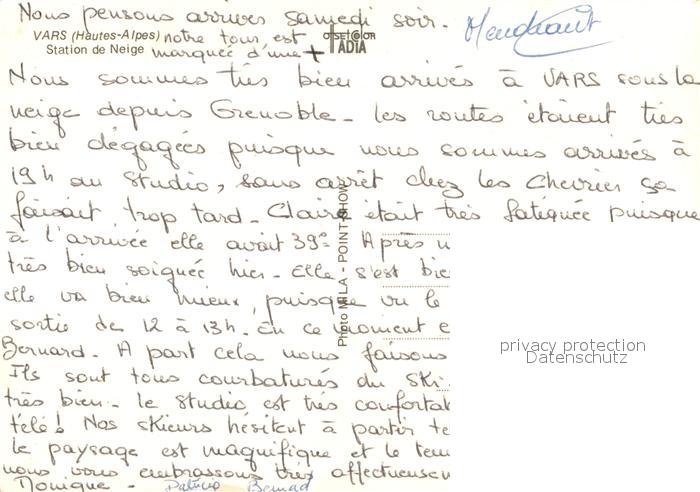 Nous pensons arriver samedi soir.
VARS (Hautes-Alpes) notre tour est
Station de Neige marquée d'une +
OFFSET COLOR
IADIA
Nous sommes très bien arrivés à VARS sous la
neige depuis Grenoble - les routes étaient très
bien dégagées puisque nous sommes arrivés à
19h au studio, sans arrêt chez les Chevrier ça
faisait trop tard - Claire était très fatiguée puisque
à l'arrivée elle avait 39° - Après
très bien soignée hier - Elle s'est
elle va bien mieux, puisque vu le
sortie de 12 à 13h. En ce moment
Bernard - A part cela nous faisons
Ils sont tous courbaturés du Ski
très bien - le studio est très
télé! Nos skieurs hésitent à partir
le paysage est magnifique et le
nous vous embrassons très
Monique - Patricia Bernard
Photo MILA - POINT SHOW
privacy protection
Datenschutz